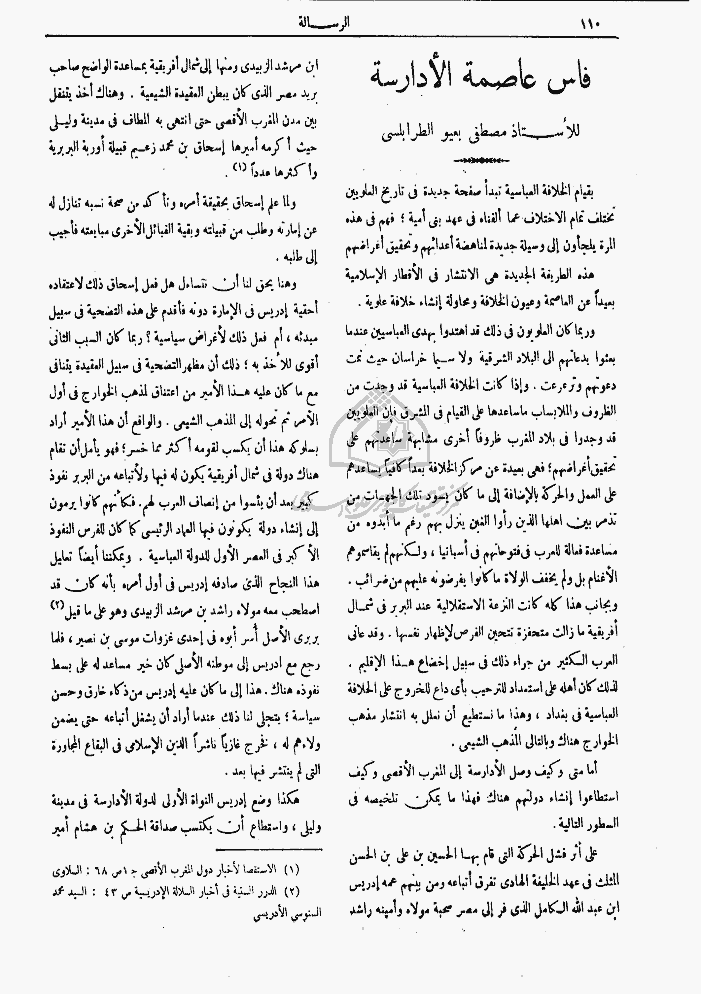 ١١٠
الرســـالة
فاس عاصمة الأدارسة
للأســـتاذ مصطفى بعيو الطرابلسى
بقيام الخلافة العباسية تبدأ صفحة جديدة فى تاريخ العلويين
تختلف تمام الاختلاف عما ألفناه فى عهد بنى أمية ؛ فهم فى هذه
المرة يلجأون إلى وسيلة جديدة لمناهضة أعدائهم وتحقيق أغراضهم
هذه الطريقة الجديدة هى الانتشار فى الأقطار الإسلامية
بعيداً عن العاصمة وعيون الخلافة ومحاولة إنشاء خلافة علوية .
وربما كان العلويون فى ذلك قد اهتدوا بهدى العباسيين عندما
بعثوا بدعاتهم الى البلاد الشرقية ولا سيما خراسان حيث نمت
دعوتهم وترعرعت . وإذا كانت الخلافة العباسية قد وجدت من
الظروف والملابسات ماساعدها على القيام فى المشرق فإن العلويين
قد وجدوا فى بلاد المغرب ظروفاً أخرى مشابهة ساعدتهم على
تحقيق أغراضهم؛ فهى بعيدة عن مركز الخلافة بعداً كافياً يساعدهم
على العمل والحركة بالإضافة إلى ما كان يسود تلك الجهات من
تذمر بين اهلها الذين رأوا الغبن ينزل بهم رغم ما أبدوه من
مساعدة فعالة للعرب فى فتوحاتهم فى أسبانيا ، ولكنهم لم يقاسموهم
الأغنام بل ولم يخفف الولاة ما كانوا يفرضونه عليهم من ضرائب .
وبجانب هذا كله كانت النزعة الاستقلالية عند البربر فى شمال
أفريقية ما زالت متحفزة تتحين الفرص لإظهار نفسها . وقد عانى
العرب الكثير من جراء ذلك فى سبيل إخضاع هـذا الإقليم .
لذلك كان أهله على استمداد للترحيب بأى داع للخروج على الخلافة
العباسية فى بغداد ، وهذا ما نستطيع أن نعلل به انتشار مذهب
الخوارج هناك وبالتالى المذهب الشيعى .
أما متى وكيف وصل الأدارسة إلى المغرب الأقصى وكيف
استطاعوا إنشاء دولتهم هناك فهذا ما يمكن تلخيصه فى
السطور التالية .
على أثر فشل الحركة التى قام بهـا الحسين بن على بن الحسن
المثلث فى عهد الخليفة الهادى تفرق أتباعه ومن بينهم عمه إدريس
ابن عبد الله الكامل الذى فر إلى مصر صحبة مولاه وأمينه راشد
ابن مرشد الزبيدى ومنها إلى شمال أفريقية بمساعدة الواضح صاحب
بريد مصر الذى كان يبطن العقيدة الشيعية . وهناك أخذ يتنقل
بين مدن المغرب الأقصى حتى انتهى به المطاف فى مدينة وليلى
حيث أكرمه أميرها إسحاق بن محمد زعيم قبيلة أوربة البربرية
وأكثرها عدداً (١) .
ولما علم إسحاق بحقيقة أمره وتأكد من صحة نسبه تنازل له
عن إمارته وطلب من قبيلته وبقية القبائل الأخرى مبايعته فأجيب
إلى طلبه .
وهنا يحق لنا أن نتساءل هل فعل إسحاق ذلك لاعتقاده
أحقية إدريس فى الإمارة دونه فأقدم على هذه التضحية فى سبيل
مبدئه ، أم فعل ذلك لأغراض سياسية ؟ ربما كان السبب الثانى
أقوى للأخذ به ؛ ذلك أن مظهر التضحية فى سبيل العقيدة يتنافى
مع ما كان عليه هـذا الأمير من اعتناق لمذهب الخوارج فى أول
الأمر ثم تحوله إلى المذهب الشيعى . والواقع أن هذا الأمير أراد
بسلوكه هذا أن يكسب لقومه أكثر مما خسر؛ فهو يأمل أن تقام
هناك دولة فى شمال أفريقية يكون له فيها ولأتباعه من البربر نفوذ
كبير بعد أن يئسوا من إنصاف العرب لهم. فكأنهم كانوا يرمون
إلى إنشاء دولة يكونون فيها العماد الرئيسى كما كان للفرس النفوذ
الأكبر فى العصر الأول للدولة العباسية . ويمكننا أيضاً تعليل
هذا النجاح الذى صادفه إدريس فى أول أمره بأنه كان قد
اصطحب معه مولاه راشد بن مرشد الزبيدى وهو على ما قيل (٢)
بربرى الأصل أُسر أبوه فى إحدى غزوات موسى بن نصير ، فلما
رجع مع ادريس إلى موطنه الأصلى كان خير مساعد له على بسط
نفوذه هناك . هذا إلى ما كان عليه إدريس من ذكاء خارق وحسن
سياسة ؛ يتجلى لنا ذلك عندما أراد أن يشغل أتباعه حتى يضمن
ولاءهم له ، فخرج غازياً ناشراً الدين الإسلامى فى البقاع المجاورة
التى لم ينتشر فيها بعد .
هكذا وضع إدريس النواة الأولى لدولة الأدارسة فى مدينة
وليلى ، واستطاع أن يكتسب صداقة الحكم بن هشام أمير
(١) الاستقصا لأخبار دول المغرب الأقصى ج ١ ص ٦٨ : السلاوى
(٢) الدرر السنية فى أخبار السلالة الإدريسية ص ٤٣ : السيد محمد
السنوسى الأدريسى